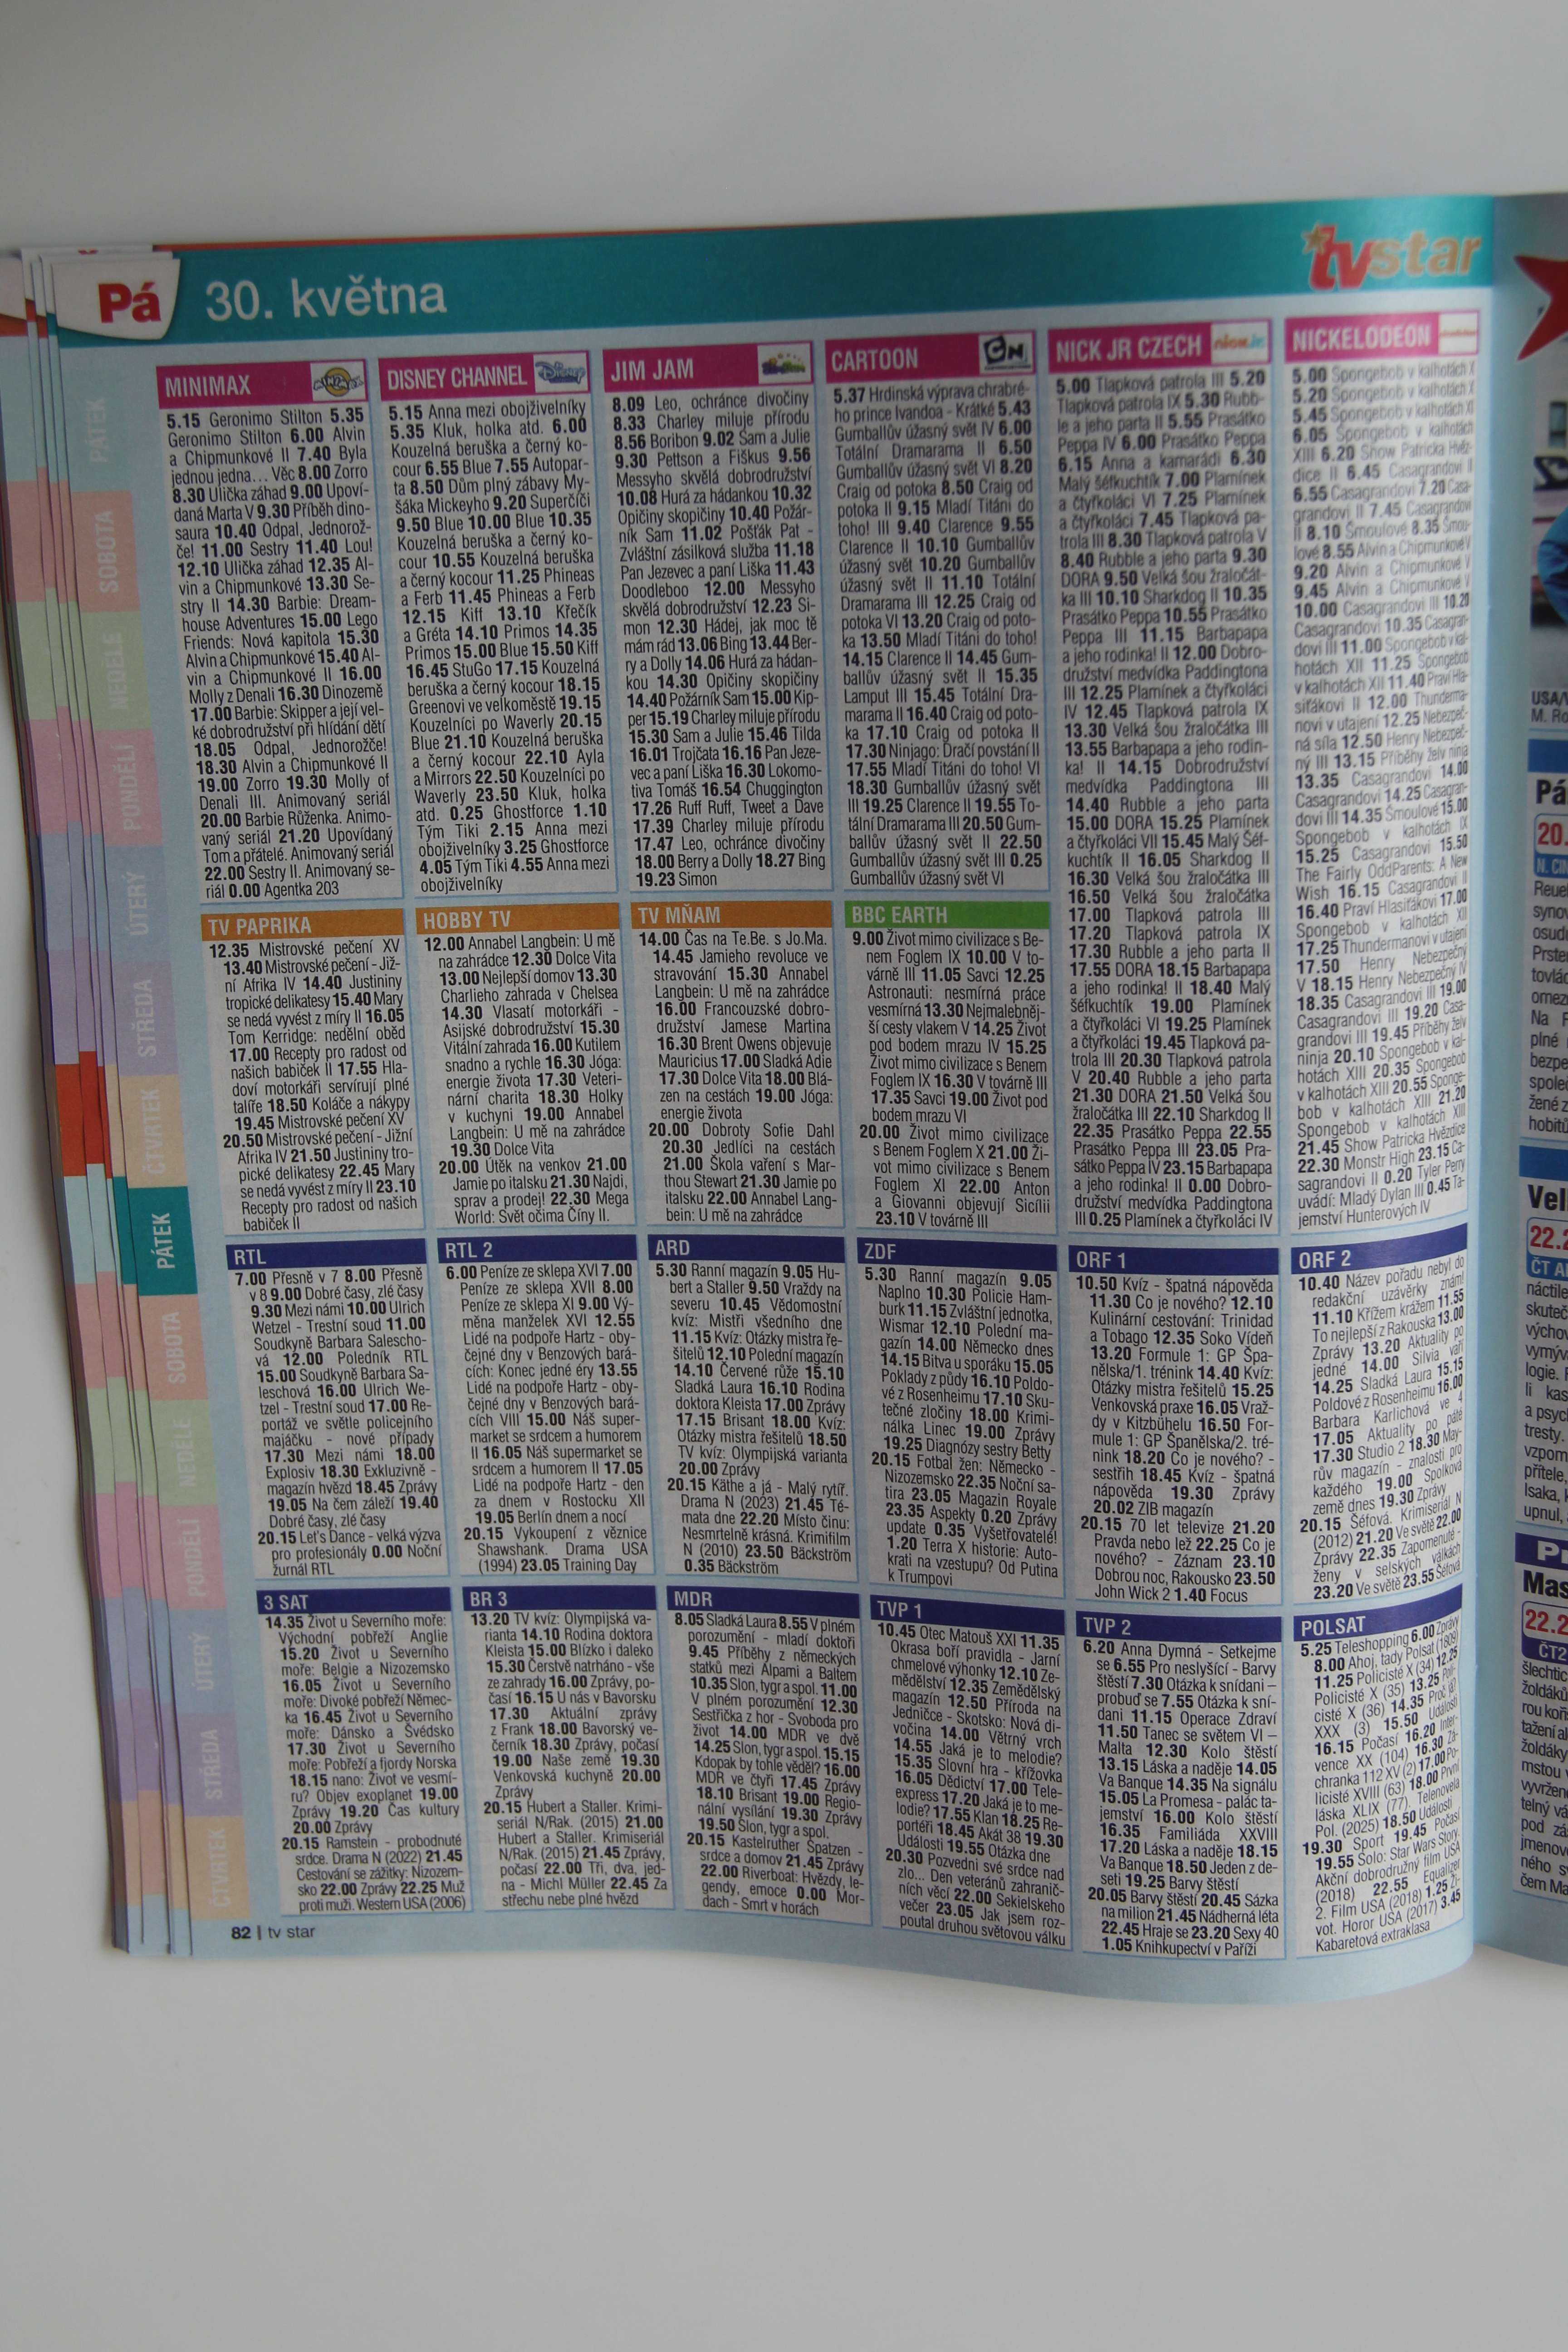 Pá 30. května
tvstar
PÁTEK
SOBOTA
NEDĚLE
PONDĚLÍ
ÚTERÝ
STŘEDA
ČTVRTEK
PÁTEK
SOBOTA
NEDĚLE
PONDĚLÍ
ÚTERÝ
STŘEDA
ČTVRTEK
MINIMAX
5.15 Geronimo Stilton 5.35
Geronimo Stilton 6.00 Alvin
a Chipmunkové II 7.40 Byla
jednou jedna... Věc 8.00 Zorro
8.30 Ulička záhad 9.00 Upoví-
daná Marta V 9.30 Příběh dino-
saura 10.40 Odpal, Jednorož-
če! 11.00 Sestry 11.40 Lou!
12.10 Ulička záhad 12.35 Al-
vin a Chipmunkové 13.30 Se-
stry II 14.30 Barbie: Dream-
house Adventures 15.00 Lego
Friends: Nová kapitola 15.30
Alvin a Chipmunkové 15.40 Al-
vin a Chipmunkové II 16.00
Molly z Denali 16.30 Dinozemě
17.00 Barbie: Skipper a její vel-
ké dobrodružství při hlídání dětí
18.05 Odpal, Jednorožče!
18.30 Alvin a Chipmunkové II
19.00 Zorro 19.30 Molly of
Denali III. Animovaný seriál
20.00 Barbie Růženka. Animo-
vaný seriál 21.20 Upovídaný
Tom a přátelé. Animovaný seriál
22.00 Sestry II. Animovaný se-
riál 0.00 Agentka 203
DISNEY CHANNEL
5.15 Anna mezi obojživelníky
5.35 Kluk, holka atd. 6.00
Kouzelná beruška a černý ko-
cour 6.55 Blue 7.55 Autopar-
ta 8.50 Dům plný zábavy My-
šáka Mickeyho 9.20 Superčíči
9.50 Blue 10.00 Blue 10.35
Kouzelná beruška a černý ko-
cour 10.55 Kouzelná beruška
a černý kocour 11.25 Phineas
a Ferb 11.45 Phineas a Ferb
12.15 Kiff 13.10 Křečík
a Gréta 14.10 Primos 14.35
Primos 15.00 Blue 15.50 Kiff
16.45 StuGo 17.15 Kouzelná
beruška a černý kocour 18.15
Greenovi ve velkoměstě 19.15
Kouzelníci po Waverly 20.15
Blue 21.10 Kouzelná beruška
a černý kocour 22.10 Ayla
a Mirrors 22.50 Kouzelníci po
Waverly 23.50 Kluk, holka
atd. 0.25 Ghostforce 1.10
Tým Tiki 2.15 Anna mezi
obojživelníky 3.25 Ghostforce
4.05 Tým Tiki 4.55 Anna mezi
obojživelníky
JIM JAM
8.09 Leo, ochránce divočiny
8.33 Charley miluje přírodu
8.56 Boribon 9.02 Sam a Julie
9.30 Pettson a Fiškus 9.56
Messyho skvělá dobrodružství
10.08 Hurá za hádankou 10.32
Opičiny skopičiny 10.40 Požár-
ník Sam 11.02 Pošťák Pat -
Zvláštní zásilková služba 11.18
Pan Jezevec a paní Liška 11.43
Doodleboo 12.00 Messyho
skvělá dobrodružství 12.23 Si-
mon 12.30 Hádej, jak moc tě
mám rád 13.06 Bing 13.44 Ber-
ry a Dolly 14.06 Hurá za hádan-
kou 14.30 Opičiny skopičiny
14.40 Požárník Sam 15.00 Kip-
per 15.19 Charley miluje přírodu
15.30 Sam a Julie 15.46 Tilda
16.01 Trojčata 16.16 Pan Jeze-
vec a paní Liška 16.30 Lokomo-
tiva Tomáš 16.54 Chuggington
17.26 Ruff Ruff, Tweet a Dave
17.39 Charley miluje přírodu
17.47 Leo, ochránce divočiny
18.00 Berry a Dolly 18.27 Bing
19.23 Simon
CARTOON
CN
5.37 Hrdinská výprava chrabré-
ho prince Ivandoa - Krátké 5.43
Gumballův úžasný svět IV 6.00
Totální Dramarama II 6.50
Gumballův úžasný svět VI 8.20
Craig od potoka 8.50 Craig od
potoka II 9.15 Mladí Titáni do
toho! III 9.40 Clarence 9.55
Clarence II 10.10 Gumballův
úžasný svět 10.20 Gumballův
úžasný svět II 11.10 Totální
Dramarama III 12.25 Craig od
potoka VI 13.20 Craig od poto-
ka 13.50 Mladí Titáni do toho!
14.15 Clarence II 14.45 Gum-
ballův úžasný svět II 15.35
Lamput III 15.45 Totální Dra-
marama II 16.40 Craig od poto-
ka 17.10 Craig od potoka II
17.30 Ninjago: Dračí povstání II
17.55 Mladí Titáni do toho! VI
18.30 Gumballův úžasný svět
III 19.25 Clarence II 19.55 To-
tální Dramarama III 20.50 Gum-
ballův úžasný svět II 22.50
Gumballův úžasný svět III 0.25
Gumballův úžasný svět VI
NICK JR CZECH
5.00 Tlapková patrola III 5.20
Tlapková patrola IX 5.30 Rubb-
le a jeho parta II 5.55 Prasátko
Peppa IV 6.00 Prasátko Peppa
6.15 Anna a kamarádi 6.30
Malý šéfkuchtík 7.00 Plamínek
a čtyřkoláci VI 7.25 Plamínek
a čtyřkoláci 7.45 Tlapková pa-
trola III 8.30 Tlapková patrola V
8.40 Rubble a jeho parta 9.30
DORA 9.50 Velká šou žraločát-
ka III 10.10 Sharkdog II 10.35
Prasátko Peppa 10.55 Prasátko
Peppa III 11.15 Barbapapa
a jeho rodinka! II 12.00 Dobro-
družství medvídka Paddingtona
III 12.25 Plamínek a čtyřkoláci
IV 12.45 Tlapková patrola IX
13.30 Velká šou žraločátka III
13.55 Barbapapa a jeho rodin-
ka! II 14.15 Dobrodružství
medvídka Paddingtona III
14.40 Rubble a jeho parta
15.00 DORA 15.25 Plamínek
a čtyřkoláci VII 15.45 Malý Šéf-
kuchtík II 16.05 Sharkdog II
16.30 Velká šou žraločátka III
16.50 Velká šou žraločátka
17.00 Tlapková patrola III
17.20 Tlapková patrola IX
17.30 Rubble a jeho parta II
17.55 DORA 18.15 Barbapapa
a jeho rodinka! II 18.40 Malý
šéfkuchtík 19.00 Plamínek
a čtyřkoláci VI 19.25 Plamínek
a čtyřkoláci 19.45 Tlapková pa-
trola III 20.30 Tlapková patrola
V 20.40 Rubble a jeho parta
21.30 DORA 21.50 Velká šou
žraločátka III 22.10 Sharkdog II
22.35 Prasátko Peppa 22.55
Prasátko Peppa III 23.05 Pra-
sátko Peppa IV 23.15 Barbapapa
a jeho rodinka! II 0.00 Dobro-
družství medvídka Paddingtona
III 0.25 Plamínek a čtyřkoláci IV
NICKELODEON
5.00 Spongebob v kalhotách X
5.20 Spongebob v kalhotách X
5.45 Spongebob v kalhotách XI
6.05 Spongebob v kalhotách
XIII 6.20 Show Patricka Hvěz-
dice II 6.45 Casagrandovi II
6.55 Casagrandovi 7.20 Casa-
grandovi II 7.45 Casagrandovi
II 8.10 Šmoulové 8.35 Šmou-
lové 8.55 Alvin a Chipmunkové V
9.20 Alvin a Chipmunkové V
9.45 Alvin a Chipmunkové V
10.00 Casagrandovi III 10.20
Casagrandovi 10.35 Casagran-
dovi III 11.00 Spongebob v kal-
hotách XII 11.25 Spongebob
v kalhotách XII 11.40 Praví Hla-
siťákovi II 12.00 Thunderma-
novi v utajení 12.25 Nebezpeč-
ná síla 12.50 Henry Nebezpeč-
ný III 13.15 Příběhy želv ninja
13.35 Casagrandovi 14.00
Casagrandovi 14.25 Casagran-
dovi III 14.35 Šmoulové 15.00
Spongebob v kalhotách IX
15.25 Casagrandovi 15.50
The Fairly OddParents: A New
Wish 16.15 Casagrandovi II
16.40 Praví Hlasiťákovi 17.00
Spongebob v kalhotách XII
17.25 Thundermanovi v utajení
17.50 Henry Nebezpečný
V 18.15 Henry Nebezpečný IV
18.35 Casagrandovi III 19.00
Casagrandovi III 19.20 Casa-
grandovi III 19.45 Příběhy želv
ninja 20.10 Spongebob v kal-
hotách XIII 20.35 Spongebob
v kalhotách XIII 20.55 Sponge-
bob v kalhotách XIII 21.20
Spongebob v kalhotách XIII
21.45 Show Patricka Hvězdice
22.30 Monstr High 23.15 Ca-
sagrandovi II 0.20 Tyler Perry
uvádí: Mladý Dylan III 0.45 Ta-
jemství Hunterových IV
TV PAPRIKA
12.35 Mistrovské pečení XV
13.40 Mistrovské pečení - Již-
ní Afrika IV 14.40 Justininy
tropické delikatesy 15.40 Mary
se nedá vyvést z míry II 16.05
Tom Kerridge: nedělní oběd
17.00 Recepty pro radost od
našich babiček II 17.55 Hla-
doví motorkáři servírují plné
talíře 18.50 Koláče a nákypy
19.45 Mistrovské pečení XV
20.50 Mistrovské pečení - Jižní
Afrika IV 21.50 Justininy tro-
pické delikatesy 22.45 Mary
se nedá vyvést z míry II 23.10
Recepty pro radost od našich
babiček II
HOBBY TV
12.00 Annabel Langbein: U mě
na zahrádce 12.30 Dolce Vita
13.00 Nejlepší domov 13.30
Charlieho zahrada v Chelsea
14.30 Vlasatí motorkáři -
Asijské dobrodružství 15.30
Vitální zahrada 16.00 Kutilem
snadno a rychle 16.30 Jóga:
energie života 17.30 Veteri-
nární charita 18.30 Holky
v kuchyni 19.00 Annabel
Langbein: U mě na zahrádce
19.30 Dolce Vita
20.00 Útěk na venkov 21.00
Jamie po italsku 21.30 Najdi,
sprav a prodej! 22.30 Mega
World: Svět očima Číny II.
TV MŇAM
14.00 Čas na Te.Be. s Jo.Ma.
14.45 Jamieho revoluce ve
stravování 15.30 Annabel
Langbein: U mě na zahrádce
16.00 Francouzské dobro-
družství Jamese Martina
16.30 Brent Owens objevuje
Mauricius 17.00 Sladká Adie
17.30 Dolce Vita 18.00 Blá-
zen na cestách 19.00 Jóga:
energie života
20.00 Dobroty Sofie Dahl
20.30 Jedlíci na cestách
21.00 Škola vaření s Mar-
thou Stewart 21.30 Jamie po
italsku 22.00 Annabel Lang-
bein: U mě na zahrádce
BBC EARTH
9.00 Život mimo civilizace s Be-
nem Foglem IX 10.00 V to-
várně III 11.05 Savci 12.25
Astronauti: nesmírná práce
vesmírná 13.30 Nejmalebněj-
ší cesty vlakem V 14.25 Život
pod bodem mrazu IV 15.25
Život mimo civilizace s Benem
Foglem IX 16.30 V továrně III
17.35 Savci 19.00 Život pod
bodem mrazu VI
20.00 Život mimo civilizace
s Benem Foglem X 21.00 Ži-
vot mimo civilizace s Benem
Foglem XI 22.00 Anton
a Giovanni objevují Sicílii
23.10 V továrně III
RTL
7.00 Přesně v 7 8.00 Přesně
v 8 9.00 Dobré časy, zlé časy
9.30 Mezi námi 10.00 Ulrich
Wetzel - Trestní soud 11.00
Soudkyně Barbara Salescho-
vá 12.00 Poledník RTL
15.00 Soudkyně Barbara Sa-
leschová 16.00 Ulrich We-
tzel - Trestní soud 17.00 Re-
portáž ve světle policejního
majáčku - nové případy
17.30 Mezi námi 18.00
Explosiv 18.30 Exkluzivně -
magazín hvězd 18.45 Zprávy
19.05 Na čem záleží 19.40
Dobré časy, zlé časy
20.15 Let's Dance - velká výzva
pro profesionály 0.00 Noční
žurnál RTL
RTL 2
6.00 Peníze ze sklepa XVI 7.00
Peníze ze sklepa XVII 8.00
Peníze ze sklepa XI 9.00 Vý-
měna manželek XVI 12.55
Lidé na podpoře Hartz - oby-
čejné dny v Benzových bará-
cích: Konec jedné éry 13.55
Lidé na podpoře Hartz - oby-
čejné dny v Benzových bará-
cích VIII 15.00 Náš super-
market se srdcem a humorem
II 16.05 Náš supermarket se
srdcem a humorem II 17.05
Lidé na podpoře Hartz - den
za dnem v Rostocku XII
19.05 Berlín dnem a nocí
20.15 Vykoupení z věznice
Shawshank. Drama USA
(1994) 23.05 Training Day
ARD
5.30 Ranní magazín 9.05 Hu-
bert a Staller 9.50 Vraždy na
severu 10.45 Vědomostní
kvíz: Mistři všedního dne
11.15 Kvíz: Otázky mistra ře-
šitelů 12.10 Polední magazín
14.10 Červené růže 15.10
Sladká Laura 16.10 Rodina
doktora Kleista 17.00 Zprávy
17.15 Brisant 18.00 Kvíz:
Otázky mistra řešitelů 18.50
TV kvíz: Olympijská varianta
20.00 Zprávy
20.15 Käthe a já - Malý rytíř.
Drama N (2023) 21.45 Té-
mata dne 22.20 Místo činu:
Nesmrtelně krásná. Krimifilm
N (2010) 23.50 Bäckström
0.35 Bäckström
ZDF
5.30 Ranní magazín 9.05
Naplno 10.30 Policie Ham-
burk 11.15 Zvláštní jednotka,
Wismar 12.10 Polední ma-
gazín 14.00 Německo dnes
14.15 Bitva u sporáku 15.05
Poklady z půdy 16.10 Poldo-
vé z Rosenheimu 17.10 Sku-
tečné zločiny 18.00 Krimi-
nálka Linec 19.00 Zprávy
19.25 Diagnózy sestry Betty
20.15 Fotbal žen: Německo -
Nizozemsko 22.35 Noční sa-
tira 23.05 Magazin Royale
23.35 Aspekty 0.20 Zprávy
update 0.35 Vyšetřovatelé!
1.20 Terra X historie: Auto-
krati na vzestupu? Od Putina
k Trumpovi
ORF 1
10.50 Kvíz - špatná nápověda
11.30 Co je nového? 12.10
Kulinární cestování: Trinidad
a Tobago 12.35 Soko Vídeň
13.20 Formule 1: GP Špa-
nělska/1. trénink 14.40 Kvíz:
Otázky mistra řešitelů 15.25
Venkovská praxe 16.05 Vraž-
dy v Kitzbühelu 16.50 For-
mule 1: GP Španělska/2. tré-
nink 18.20 Co je nového? -
sestřih 18.45 Kvíz - špatná
nápověda 19.30 Zprávy
20.02 ZIB magazín
20.15 70 let televize 21.20
Pravda nebo lež 22.25 Co je
nového? - Záznam 23.10
Dobrou noc, Rakousko 23.50
John Wick 2 1.40 Focus
ORF 2
10.40 Název pořadu nebyl do
redakční uzávěrky znám!
11.10 Křížem krážem 11.55
To nejlepší z Rakouska 13.00
Zprávy 13.20 Aktuality po
jedné 14.00 Silvia vaří
14.25 Sladká Laura 15.15
Poldové z Rosenheimu 16.00
Barbara Karlichová ve 4
17.05 Aktuality po páté
17.30 Studio 2 18.30 May-
rův magazín - znalosti pro
každého 19.00 Spolková
země dnes 19.30 Zprávy
20.15 Šéfová. Krimiseriál N
(2012) 21.20 Ve světě 22.00
Zprávy 22.35 Zapomenuté -
ženy v selských válkách
23.20 Ve světě 23.55 Šéfová
3 SAT
14.35 Život u Severního moře:
Východní pobřeží Anglie
15.20 Život u Severního
moře: Belgie a Nizozemsko
16.05 Život u Severního
moře: Divoké pobřeží Němec-
ka 16.45 Život u Severního
moře: Dánsko a Švédsko
17.30 Život u Severního
moře: Pobřeží a fjordy Norska
18.15 nano: Život ve vesmí-
ru? Objev exoplanet 19.00
Zprávy 19.20 Čas kultury
20.00 Zprávy
20.15 Ramstein - probodnuté
srdce. Drama N (2022) 21.45
Cestování se zážitky: Nizozem-
sko 22.00 Zprávy 22.25 Muž
proti muži. Western USA (2006)
BR 3
13.20 TV kvíz: Olympijská va-
rianta 14.10 Rodina doktora
Kleista 15.00 Blízko i daleko
15.30 Čerstvě natrháno - vše
ze zahrady 16.00 Zprávy, po-
časí 16.15 U nás v Bavorsku
17.30 Aktuální zprávy
z Frank 18.00 Bavorský ve-
černík 18.30 Zprávy, počasí
19.00 Naše země 19.30
Venkovská kuchyně 20.00
Zprávy
20.15 Hubert a Staller. Krimi-
seriál N/Rak. (2015) 21.00
Hubert a Staller. Krimiseriál
N/Rak. (2015) 21.45 Zprávy,
počasí 22.00 Tři, dva, jed-
na - Michl Müller 22.45 Za
střechu nebe plné hvězd
MDR
8.05 Sladká Laura 8.55 V plném
porozumění - mladí doktoři
9.45 Příběhy z německých
statků mezi Alpami a Baltem
10.35 Slon, tygr a spol. 11.00
V plném porozumění 12.30
Sestřička z hor - Svoboda pro
život 14.00 MDR ve dvě
14.25 Slon, tygr a spol. 15.15
Kdopak by tohle věděl? 16.00
MDR ve čtyři 17.45 Zprávy
18.10 Brisant 19.00 Regio-
nální vysílání 19.30 Zprávy
19.50 Slon, tygr a spol.
20.15 Kastelruther Spatzen -
srdce a domov 21.45 Zprávy
22.00 Riverboat: Hvězdy, le-
gendy, emoce 0.00 Mor-
dach - Smrt v horách
TVP 1
10.45 Otec Matouš XXI 11.35
Okrasa boří pravidla - Jarní
chmelové výhonky 12.10 Ze-
mědělství 12.35 Zemědělský
magazín 12.50 Příroda na
Jedničce - Skotsko: Nová di-
vočina 14.00 Větrný vrch
14.55 Jaká je to melodie?
15.35 Slovní hra - křížovka
16.05 Dědictví 17.00 Tele-
express 17.20 Jaká je to me-
lodie? 17.55 Klan 18.25 Re-
portéři 18.45 Akát 38 19.30
Události 19.55 Otázka dne
20.30 Pozvedni své srdce nad
zlo... Den veteránů zahranič-
ních věcí 22.00 Sekielskeho
večer 23.05 Jak jsem roz-
poutal druhou světovou válku
TVP 2
6.20 Anna Dymná - Setkejme
se 6.55 Pro neslyšící - Barvy
štěstí 7.30 Otázka k snídani –
probuď se 7.55 Otázka k sní-
dani 11.15 Operace Zdraví
11.50 Tanec se světem VI –
Malta 12.30 Kolo štěstí
13.15 Láska a naděje 14.05
Va Banque 14.35 Na signálu
15.05 La Promesa - palác ta-
jemství 16.00 Kolo štěstí
16.35 Familiáda XXVIII
17.20 Láska a naděje 18.15
Va Banque 18.50 Jeden z de-
seti 19.25 Barvy štěstí
20.05 Barvy štěstí 20.45 Sázka
na milion 21.45 Nádherná léta
22.45 Hraje se 23.20 Sexy 40
1.05 Knihkupectví v Paříži
POLSAT
5.25 Teleshopping 6.00 Zprávy
8.00 Ahoj, tady Polsat (1809)
11.25 Policisté X (34) 12.25
Policisté X (35) 13.25 Poli-
cisté X (36) 14.35 Proč já?
XXX (3) 15.50 Události
16.15 Počasí 16.20 Inter-
vence XX (104) 16.30 Zá-
chranka 112 XV (2) 17.00 Po-
licisté XVIII (63) 18.00 První
láska XLIX (77). Telenovela
Pol. (2025) 18.50 Události
19.30 Sport 19.45 Počasí
19.55 Solo: Star Wars Story.
Akční dobrodružný film USA
(2018) 22.55 Equalizer
2. Film USA (2018) 1.25 Ži-
vot. Horor USA (2017) 3.45
Kabaretová extraklasa
82 | tv star
USA/V
M. Ro
Pá
20.
N. CIN
Reuel
synov
osudu
Prste
továc
omez
Na F
plné
bezpe
společ
žené z
hobitů
Vel
22.2
ČT A
náctile
skuteč
chová
výchov
vymýv
logie.
li kas
a psyc
tresty.
vzpom
přítele,
Isaka,
upnul,
Mas
22.2
ČT2
šlechtic
žoldáků
rou koň
tažení al
žoldáky
mstou v
vyvržen
telný vá
pod zá
jmenov
ného s
čem Ma